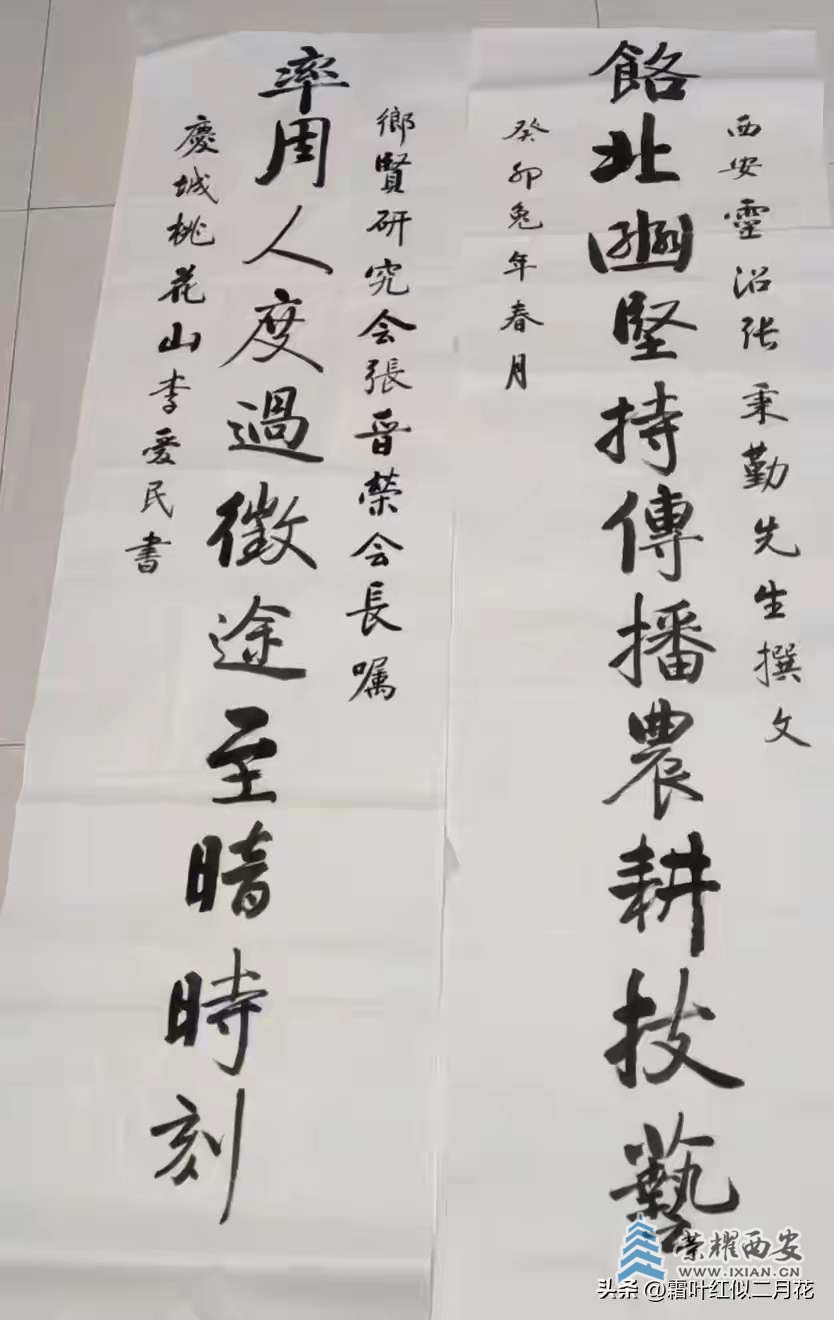 西安靈沼张秉勤先生撰文
餎北豳堅持傳播農耕技藝
癸卯兔年春月
鄉賢研究会張晉榮会長嘱
率周人度過徵途至暗時刻
慶城桃花山李爱民書
荣耀西安
WWW.IXIAN.CN
头条 @霜叶红似二月花